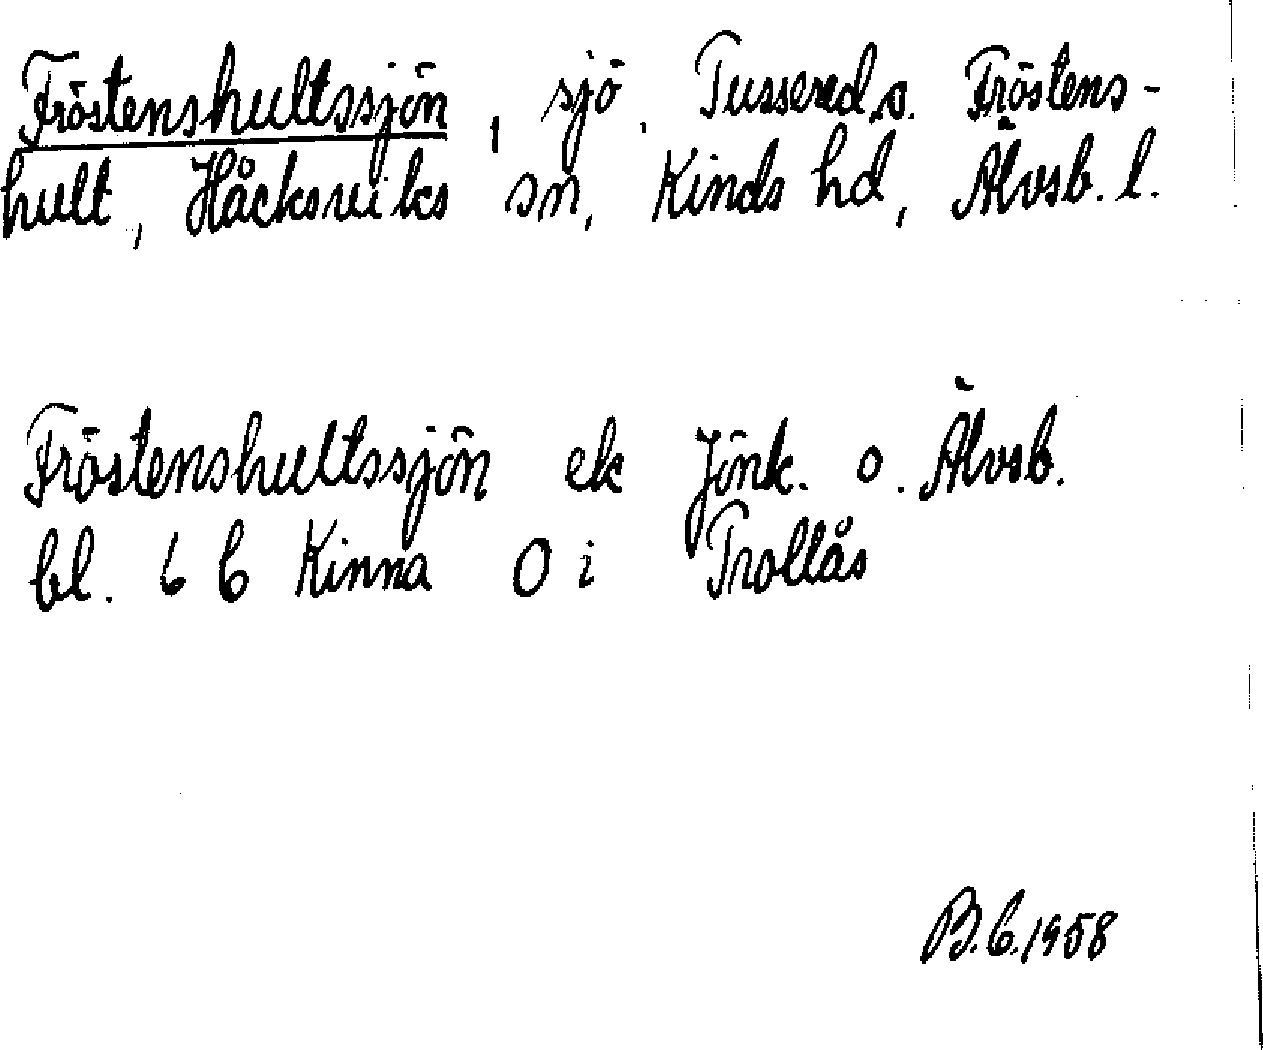 Fröstenshultssjön, sjö. Tussered o. Fröstens-
hult, Håcksviks sn, Kinds hd, Älvsb. l.
Fröstenshultssjön ek Jönk. o. Älvsb.
bl. 6 b Kinna O i Trollås
B.C. 1958